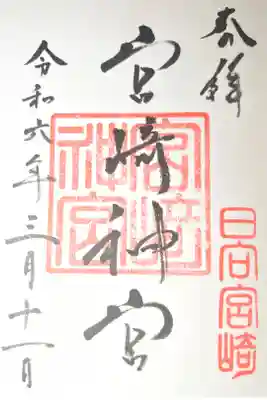 奉拝
日向宮崎
宮崎神宮
宮﨑神宮
令和六年三月十一日